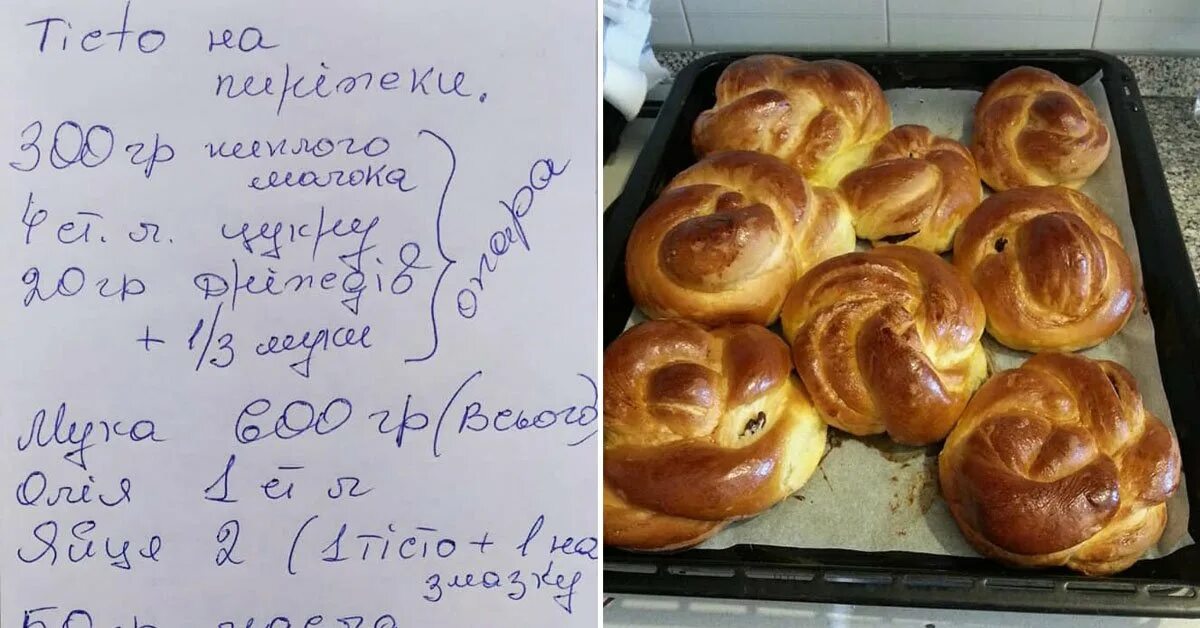 Тісто на
пиріжеки.
300 гр теплого
молока
4 ст. л. цукру
20 гр дріжедів
+ 1/3 муки
опара
Мука 600 гр (Всього)
Олія 1 ст л
Яйця 2 (1 тісто + 1 на
змазку
50 гр масла